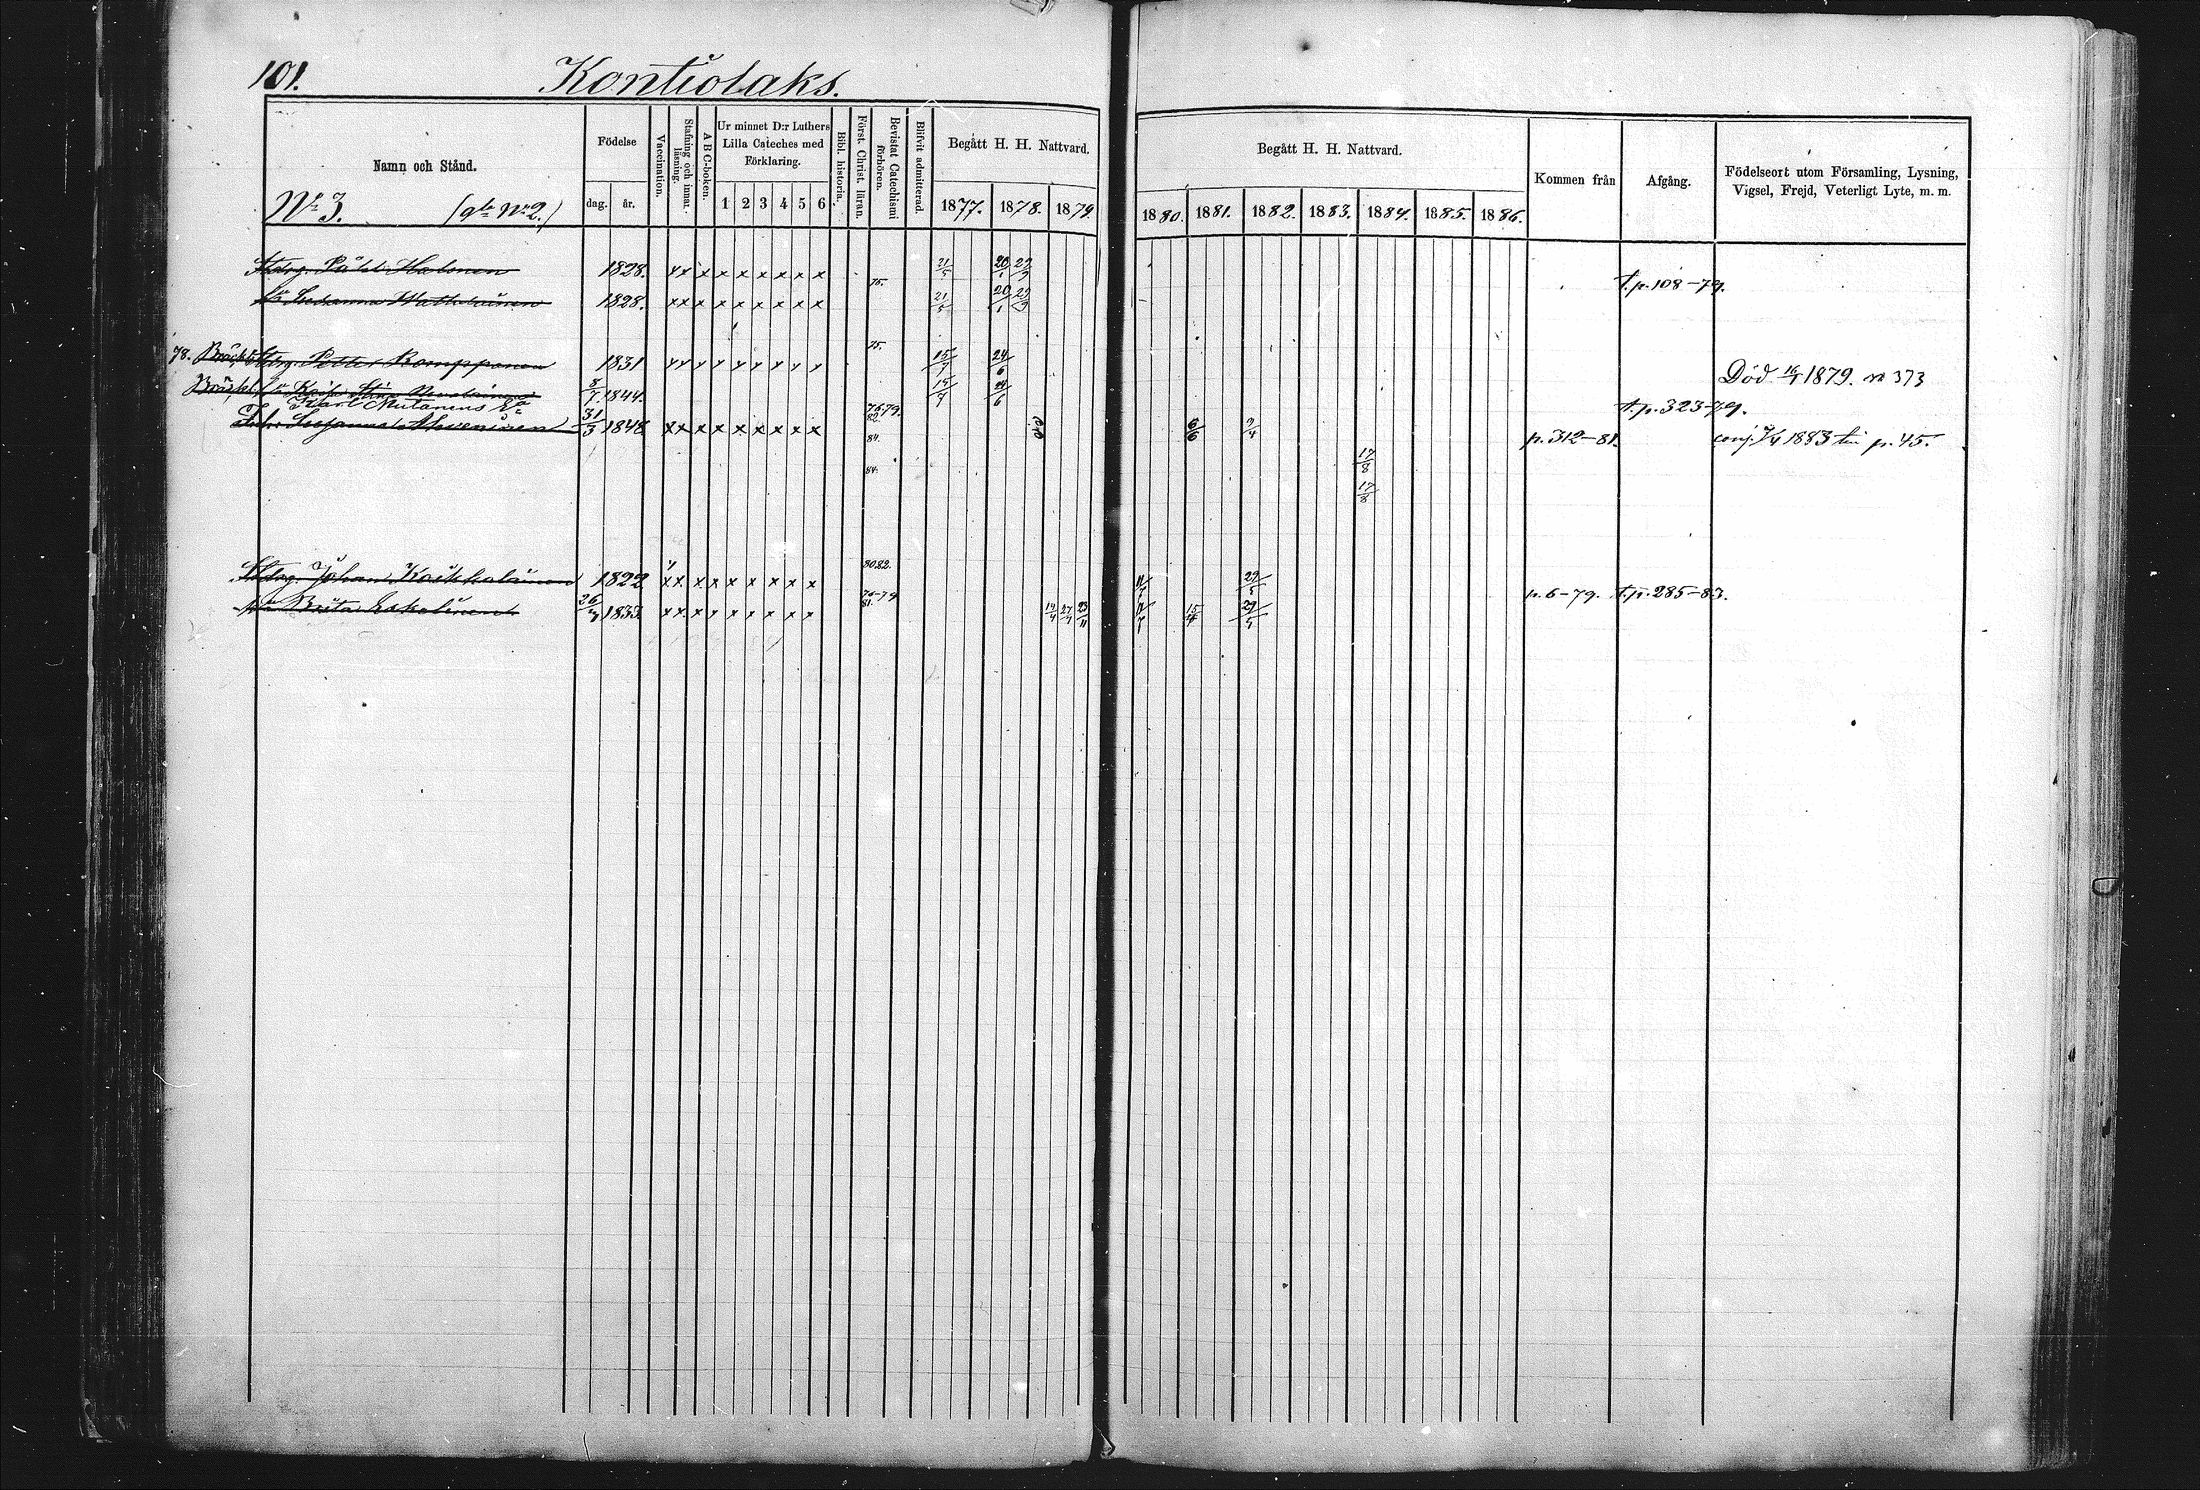 101. Kontiolaks.
Namn och Stånd.
Födelse
dag. år.
Vaccination.
Stafning och innanläsning.
A B C-boken.
Ur minnet D:r Luthers Lilla Cateches med Förklaring.
1 2 3 4 5 6
Bibl. historia.
Först. Christ. läran.
Bevistat Catechismi förhören.
Blifvit admitterad.
Begått H. H. Nattvard.
1877. 1878. 1879.
Begått H. H. Nattvard.
1880. 1881. 1882. 1883. 1884. 1885. 1886.
Kommen från
Afgång.
Födelseort utom Församling, Lysning, Vigsel, Frejd, Veterligt Lyte, m. m.
No 3. (gla No 2.)
Påhl Halonen 1828. x x x x x x x x x 21/5 20/1 29/9 t. p. 108-79.
Susanna 1828. x x x x x x x x x 75. 21/5 20/1 29/9
78. Petter Romppanen 1831 x x x x x x x x x 75. 15/7 24/6 Död 16/1 1879. no 373
Kajsa Stina 8/7 1844. 15/7 24/6
Karl Mutanens t. p. 323-79.
Susanna Ahveninen 31/3 1848 x x x x x x x x x 76.79. 82. 84. 6/6 9/4 p. 312-81. conj. 1883 p. 45.
84. 17/8
17/8
Johan Koikkalainen 1822 x x x x x x x x x 80.82. 11/7 29/5 p. 6-79. t. p. 285-83.
Brita Eskelinen 1833. x x x x x x x x x 76-79 81. 14/4 27/7 23/11 11/7 15/4 29/5